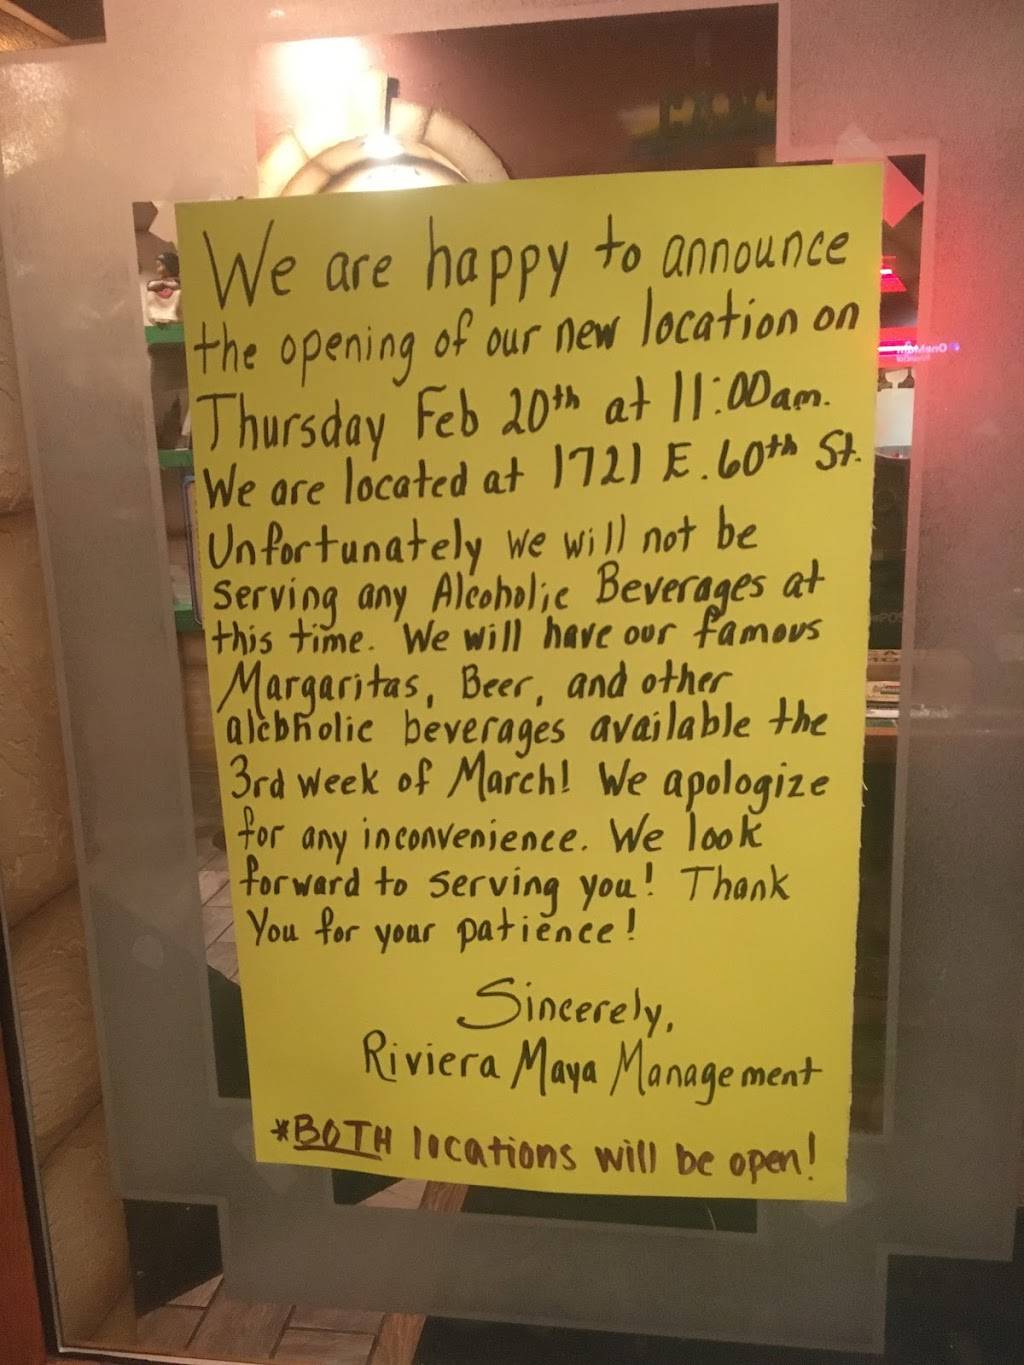 We are happy to announce
the opening of our new location on
Thursday Feb 20th at 11:00am.
We are located at 1721 E. 60th St.
Unfortunately we will not be
serving any Alcoholic Beverages at
this time. We will have our famous
Margaritas, Beer, and other
alcbholic beverages available the
3rd week of March! We apologize
for any inconvenience. We look
forward to serving you! Thank
You for your patience!
Sincerely,
Riviera Maya Management
*BOTH locations will be open!